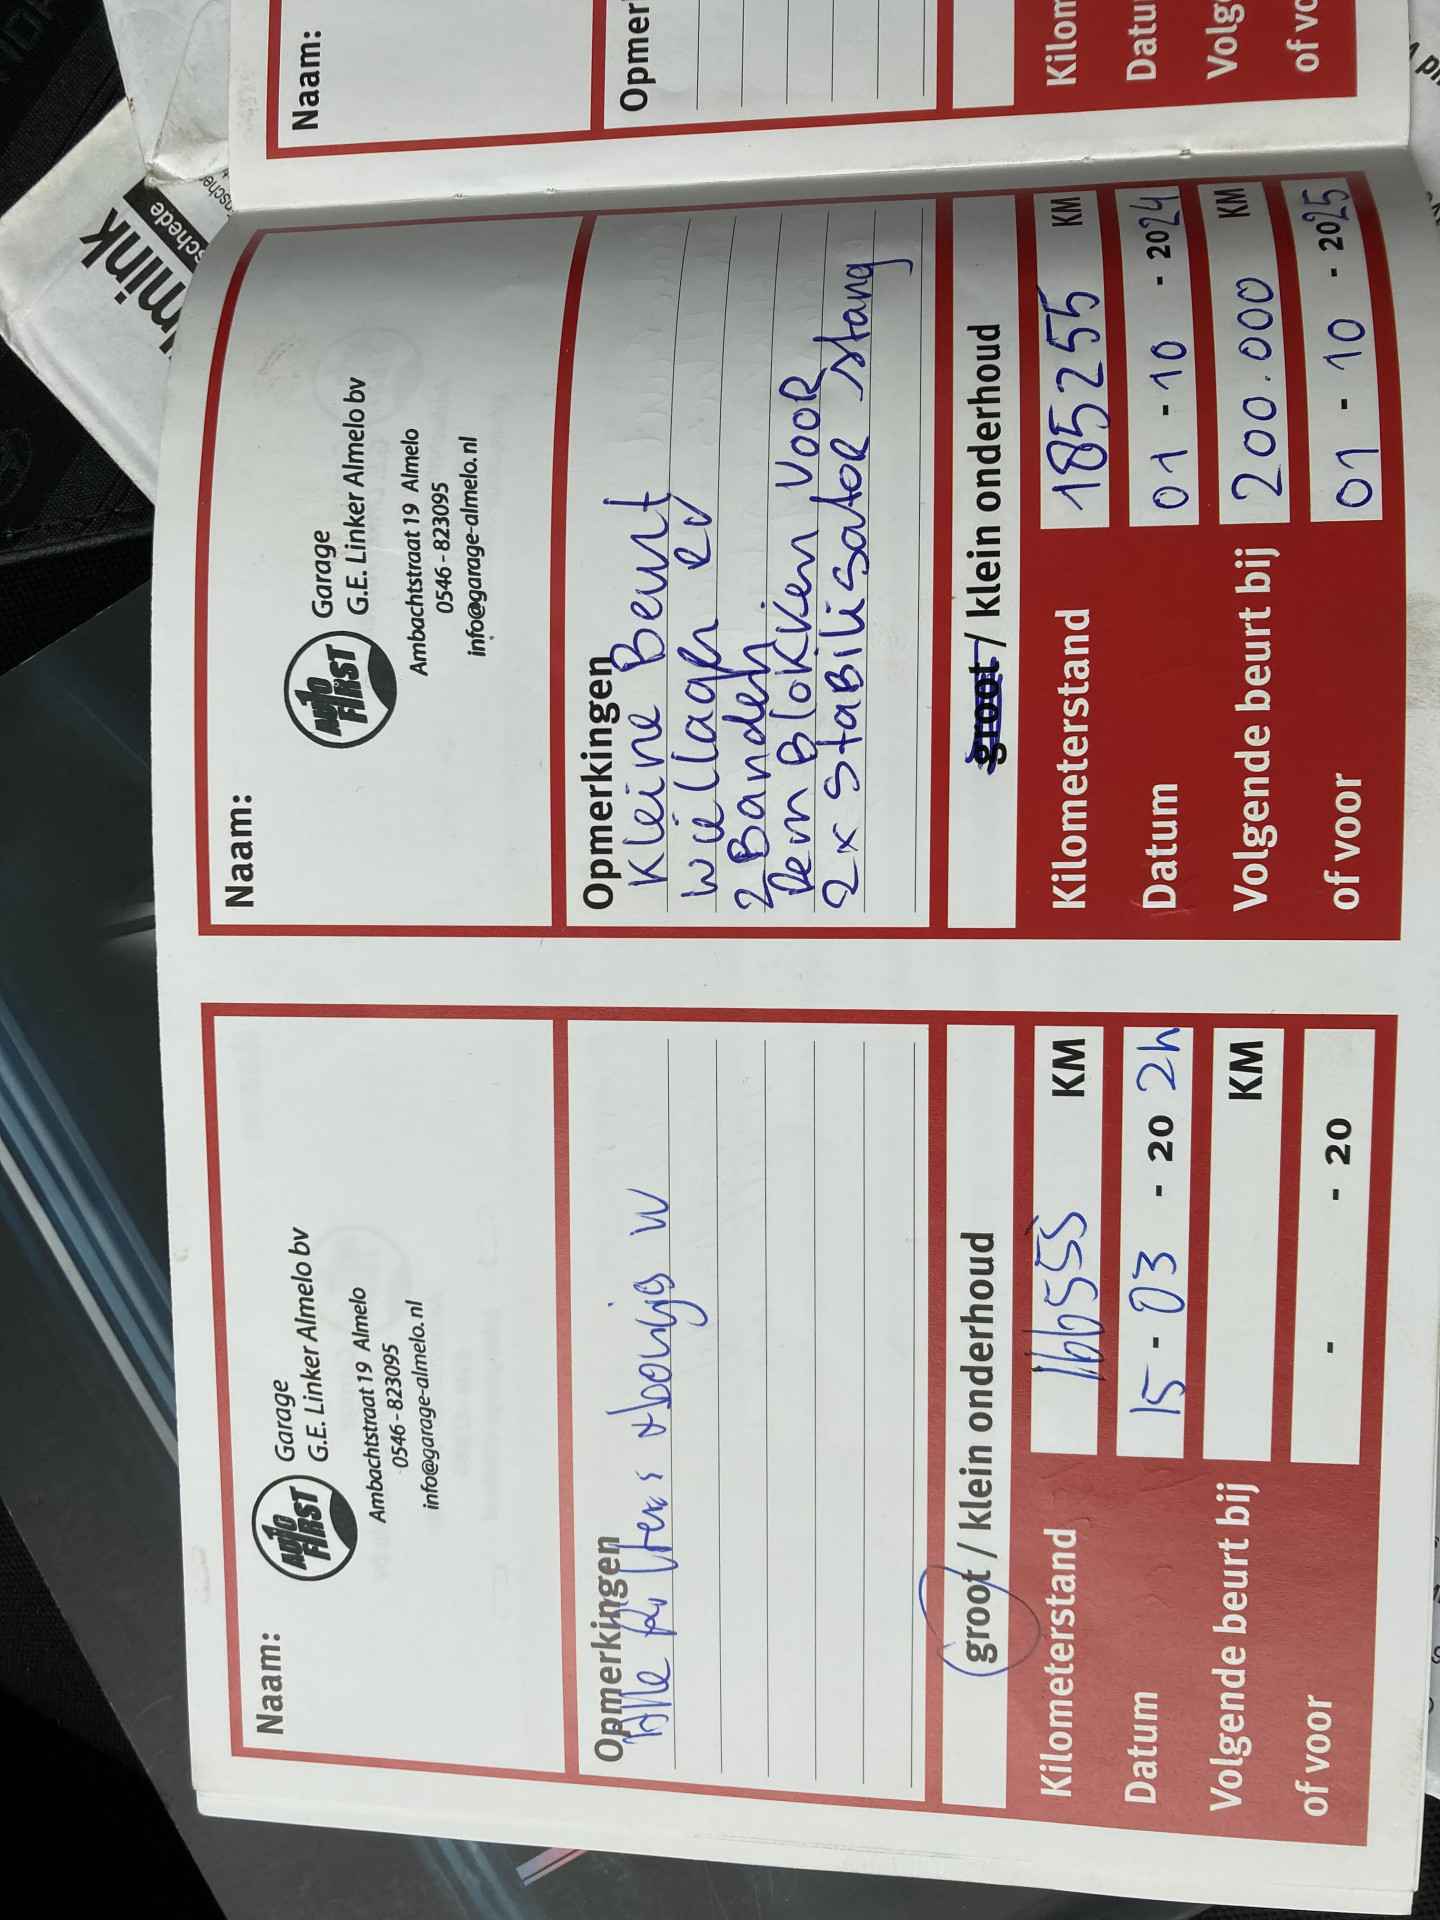 Naam:
AUTO
FIRST
Garage
G.E. Linker Almelo bv
Ambachtstraat 19 Almelo
0546 - 823095
info@garage-almelo.nl
Opmerkingen
Alle filters
groot / klein onderhoud
Kilometerstand 166555 KM
Datum 15 - 03 - 20 24
Volgende beurt bij KM
of voor - - 20
Naam:
AUTO
FIRST
Garage
G.E. Linker Almelo bv
Ambachtstraat 19 Almelo
0546 - 823095
info@garage-almelo.nl
Opmerkingen
Kleine Beurt
wiellager RV
2 Banden
Remblokken VOOR
2x Stabilisator stang
groot / klein onderhoud
Kilometerstand 185255 KM
Datum 01 - 10 - 2024
Volgende beurt bij 200.000 KM
of voor 01 - 10 - 2025
Naam:
Opmer
Kilom
Datu
Volg
of vo
mink
schede